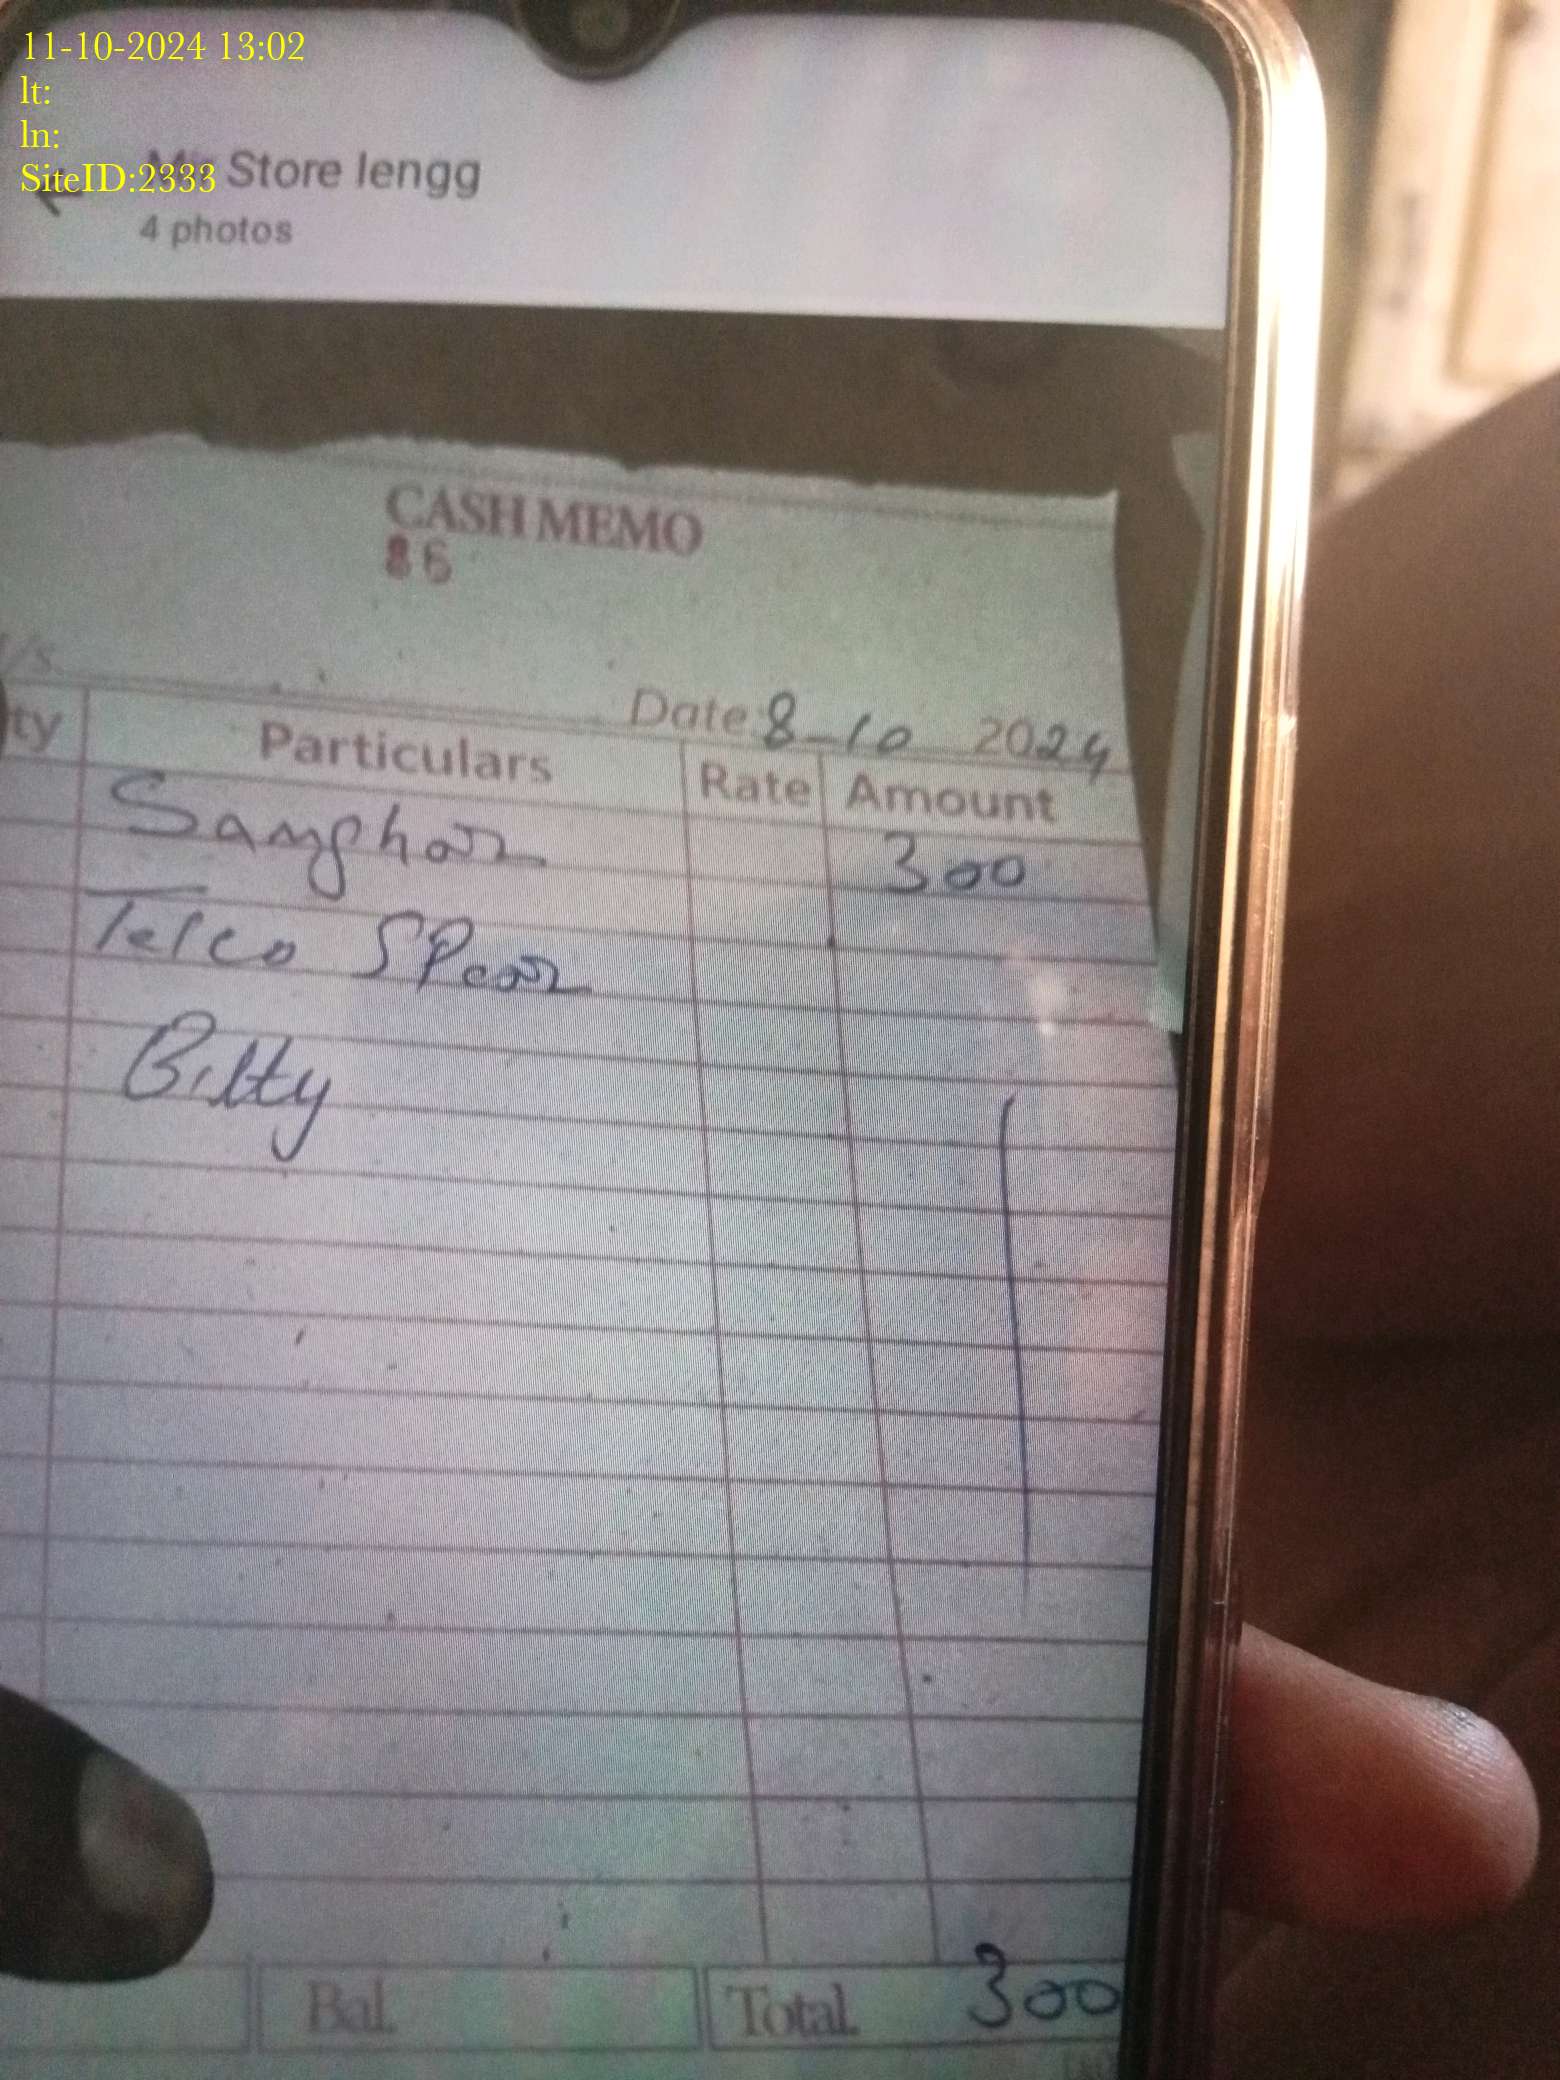 11-10-2024 13:02
lt:
ln:
SiteID:2333
Store lengg
4 photos
CASH MEMO
86
/s
Date 8-10 2024
ty Particulars Rate Amount
Sanghar 300
Telco SPear
Bilty
Bal. Total. 300